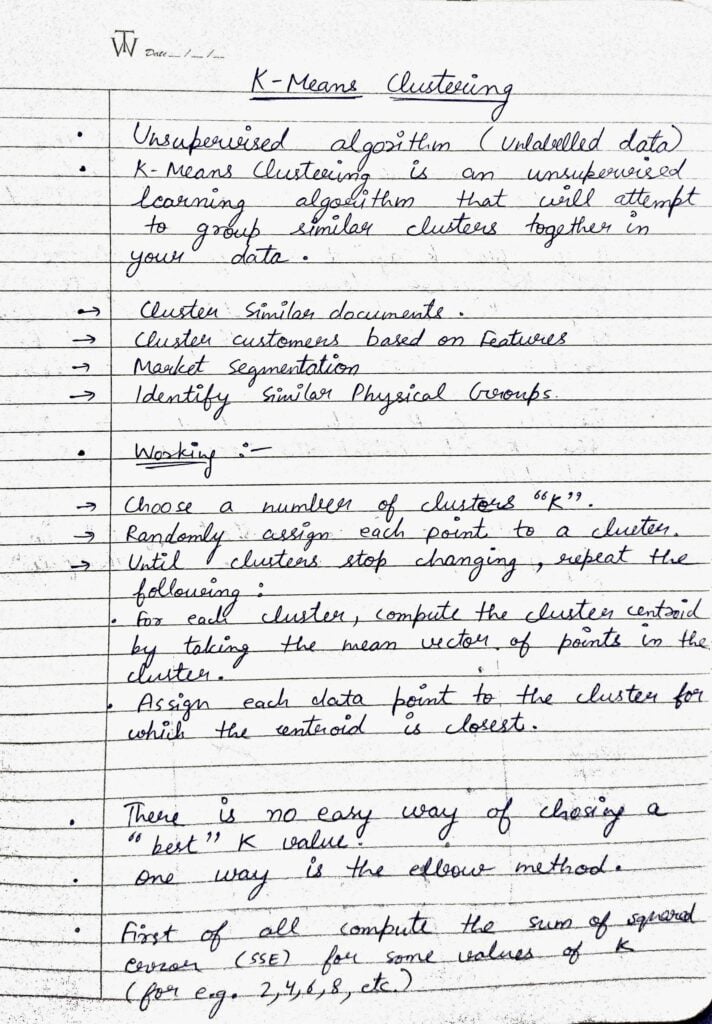 TW Date__/__/__
K-Means Clustering
• Unsupervised algorithm (unlabelled data)
• K-Means Clustering is an unsupervised
learning algorithm that will attempt
to group similar clusters together in
your data.
→ Cluster similar documents.
→ Cluster customers based on Features
→ Market segmentation
→ Identify similar Physical Groups.
• Working :-
→ Choose a number of clusters "K".
→ Randomly assign each point to a cluster.
→ Until clusters stop changing, repeat the
following:
• For each cluster, compute the cluster centroid
by taking the mean vector of points in the
cluster.
• Assign each data point to the cluster for
which the centroid is closest.
• There is no easy way of chosing a
"best" K value.
• One way is the elbow method.
• First of all compute the sum of squared
error (SSE) for some values of K
(for e.g. 2,4,6,8, etc.)